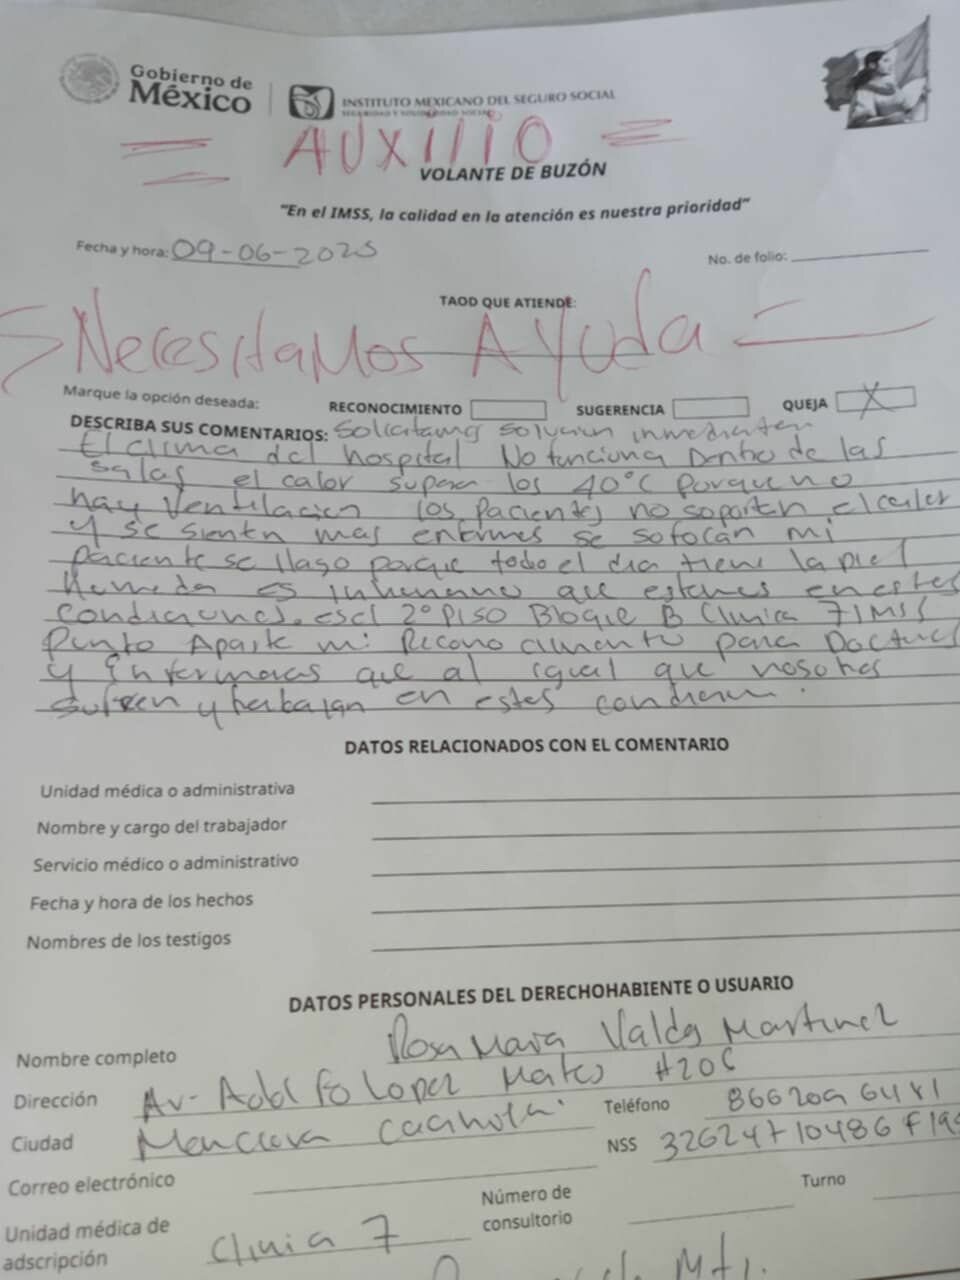 Gobierno de
México
INSTITUTO MEXICANO DEL SEGURO SOCIAL
SEGURIDAD Y SOLIDARIDAD SOCIAL
= AUXIlIO =
VOLANTE DE BUZÓN
"En el IMSS, la calidad en la atención es nuestra prioridad"
Fecha y hora: 09-06-2025
No. de folio:
TAOD QUE ATIENDE:
Necesitamos Ayuda
Marque la opción deseada: RECONOCIMIENTO SUGERENCIA QUEJA X
DESCRIBA SUS COMENTARIOS: Solicitamos solucion inmediata
El clima del hospital No funciona Dentro de las
salas el calor supera los 40°C porque no
hay ventilacion los pacientes no soportan el calor
y se sienten mas enfermos se sofocan mi
paciente se llago porque todo el dia tiene la piel
Humeda es inhumano que estemos en estas
condiciones. es el 2° piso Bloque B Clinica 7 IMSS
Punto Aparte mi Reconocimiento para Doctores
y Enfermeras que al igual que nosotros
sufren y trabajan en estas
DATOS RELACIONADOS CON EL COMENTARIO
Unidad médica o administrativa
Nombre y cargo del trabajador
Servicio médico o administrativo
Fecha y hora de los hechos
Nombres de los testigos
DATOS PERSONALES DEL DERECHOHABIENTE O USUARIO
Nombre completo Rosa Maria Valdes Martinez
Dirección Av. Adolfo Lopez Mateos #206
Ciudad Monclova Coahuila.
Teléfono 866209
NSS
Correo electrónico
Unidad médica de adscripción Clinica 7
Número de consultorio
Turno